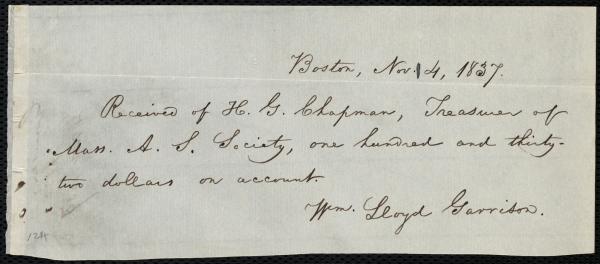 Boston, Nov. 14, 1837.
Received of H. G. Chapman, Treasurer of
Mass. A. S. Society, one hundred and thirty-
two dollars on account.
Wm. Lloyd Garrison.